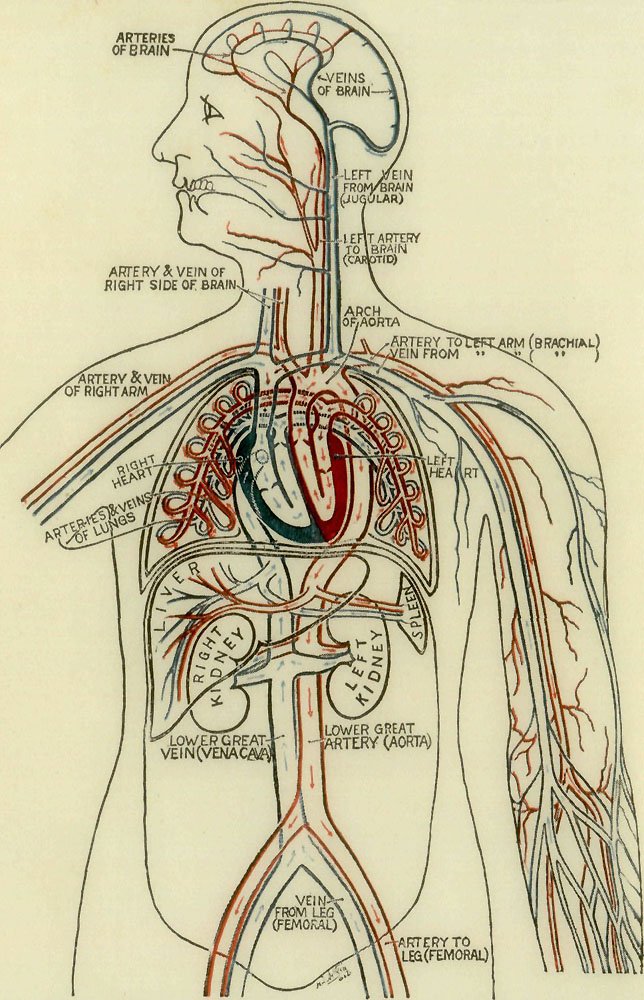 ARTERIES
OF BRAIN
VEINS
OF BRAIN
LEFT VEIN
FROM BRAIN
(JUGULAR)
LEFT ARTERY
TO BRAIN
(CAROTID)
ARTERY & VEIN OF
RIGHT SIDE OF BRAIN
ARCH
OF AORTA
ARTERY TO LEFT ARM (BRACHIAL)
VEIN FROM " " ( " )
ARTERY & VEIN
OF RIGHT ARM
RIGHT
HEART
LEFT
HEART
ARTERIES & VEINS
OF LUNGS
LIVER
SPLEEN
RIGHT
KIDNEY
LEFT
KIDNEY
LOWER GREAT
VEIN (VENA CAVA)
LOWER GREAT
ARTERY (AORTA)
VEIN
FROM LEG
(FEMORAL)
ARTERY TO
LEG (FEMORAL)